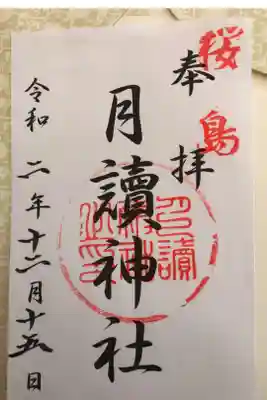 桜島
奉拝
月讀神社
令和二年十二月十五日